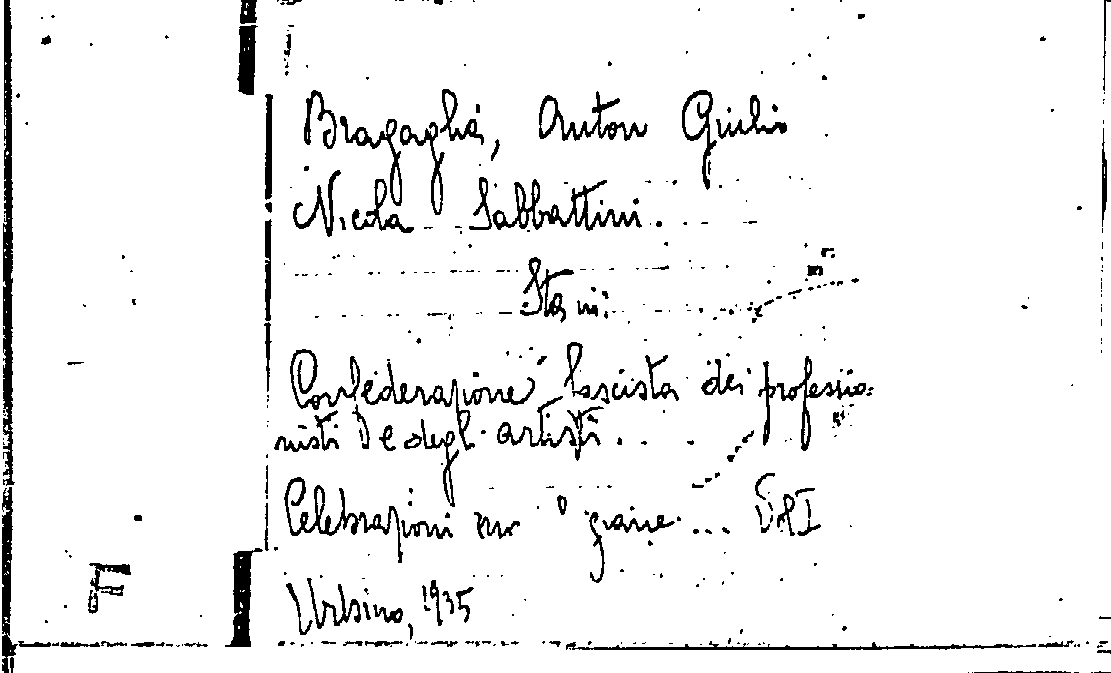 Bragaglia, Anton Giulio
Nicola Sabbattini.
Sta in:
Confederazione fascista dei professio=
nisti e degli artisti...
Celebrazioni
Urbino, 1935
F